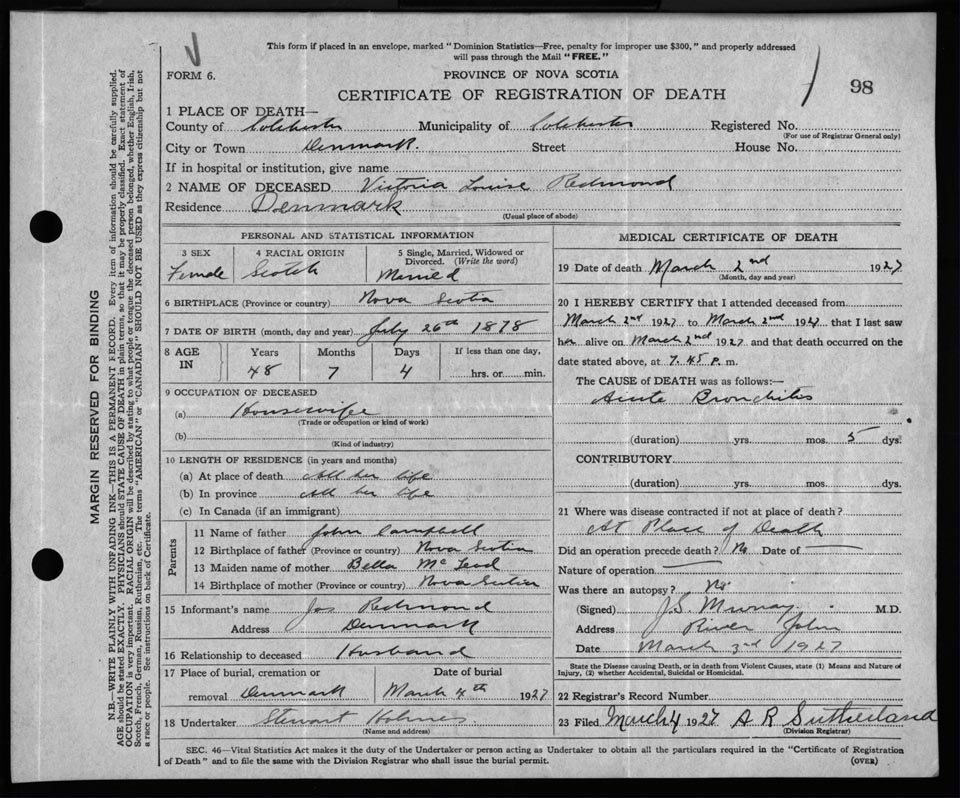 This form if placed in an envelope, marked "Dominion Statistics—Free, penalty for improper use $300," and properly addressed
will pass through the Mail "FREE."
FORM 6.
PROVINCE OF NOVA SCOTIA
98
CERTIFICATE OF REGISTRATION OF DEATH
1 PLACE OF DEATH—
County of Colchester Municipality of Colchester Registered No.
(For use of Registrar General only)
City or Town Denmark. Street House No.
If in hospital or institution, give name
2 NAME OF DECEASED Victoria Louise Redmond
Residence Denmark
(Usual place of abode)
PERSONAL AND STATISTICAL INFORMATION
3 SEX Female
4 RACIAL ORIGIN Scotch
5 Single, Married, Widowed or
Divorced. (Write the word)
Married
6 BIRTHPLACE (Province or country) Nova Scotia
7 DATE OF BIRTH (month, day and year) July 26th 1878
8 AGE IN Years Months Days If less than one day,
48 7 4 hrs. or min.
9 OCCUPATION OF DECEASED
(a) Housewife
(Trade or occupation or kind of work)
(b)
(Kind of industry)
10 LENGTH OF RESIDENCE (in years and months)
(a) At place of death All her life
(b) In province All her life
(c) In Canada (if an immigrant)
Parents
11 Name of father John Campbell
12 Birthplace of father (Province or country) Nova Scotia
13 Maiden name of mother Bella McLeod
14 Birthplace of mother (Province or country) Nova Scotia
15 Informant's name Jas Redmond
Address Denmark
16 Relationship to deceased Husband
17 Place of burial, cremation or Date of burial
removal Denmark March 4th 1927
18 Undertaker Stewart Holmes
(Name and address)
MEDICAL CERTIFICATE OF DEATH
19 Date of death March 2nd 1927
(Month, day and year)
20 I HEREBY CERTIFY that I attended deceased from
March 2nd 1927 to March 2nd 1927 that I last saw
her alive on March 2nd 1927 and that death occurred on the
date stated above, at 7.45 P. m.
The CAUSE OF DEATH was as follows:—
Acute Bronchitis
(duration) yrs. mos. 5 dys.
CONTRIBUTORY
(duration) yrs. mos. dys.
21 Where was disease contracted if not at place of death?
At Place of Death
Did an operation precede death? No Date of
Nature of operation
Was there an autopsy? No
(Signed) J.S. Murray. M.D.
Address River John
Date March 3rd 1927
State the Disease causing Death, or in death from Violent Causes, state (1) Means and Nature of
Injury, (2) whether Accidental, Suicidal or Homicidal.
22 Registrar's Record Number
23 Filed March 4 1927 A R Sutherland
(Division Registrar)
SEC. 46—Vital Statistics Act makes it the duty of the Undertaker or person acting as Undertaker to obtain all the particulars required in the "Certificate of Registration
of Death" and to file the same with the Division Registrar who shall issue the burial permit. (OVER)
MARGIN RESERVED FOR BINDING
N.B.—WRITE PLAINLY WITH UNFADING INK—THIS IS A PERMANENT RECORD. Every item of information should be carefully supplied.
AGE should be stated EXACTLY. PHYSICIANS should STATE CAUSE OF DEATH in plain terms, so that it may be properly classified. Exact statement of
OCCUPATION is very important. RACIAL ORIGIN will be described by stating to what people or tongue the deceased person belonged, whether English, Irish,
Scotch, French, German, Russian, Ruthenian, etc. The terms "AMERICAN" or "CANADIAN" SHOULD NOT BE USED as they express citizenship but not
a race or people. See instructions on back of Certificate.